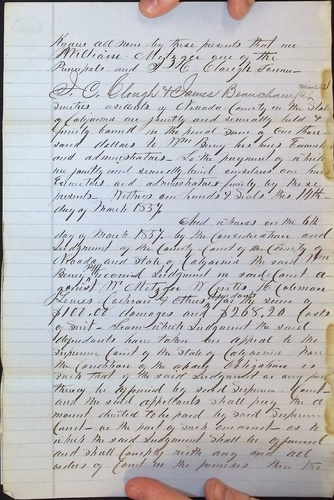 Know all men by these presents that we
William Metzger one of the
Principals and
J. G. Clough & James Beauchamp
sureties all of Nevada County in the State
of California are jointly and severally held &
firmly bound in the penal sum of One thou
sand dollars to Wm Berry his heirs Executors
and administrators. To the payment of which
we jointly and severally bind ourselves our heirs
Executors and administrators firmly by these
presents Witness our hands & Seals this 14th
day of March 1857
And whereas on the 6th
day of March 1857 by the Consideration and
Judgment of the County Court of the County of
Nevada and State of California the said Wm
Berry recovered Judgment in said Court a
gainst Wm Metzger Coleman
Lewis Cochran & others defendants for the sume of
$100.00 damages and $268.20 Costs
of Suit. From which Judgment the said
defendants have taken an appeal to the
Supreme Court of the State of California Now
the Condition of the above Obligation is
such that if the said Judgment or any part
thereof be affirmed by said Supreme Court
and the said appellants shall pay the a
mount directed to be paid by said Supreme
Court or the part of such amount as to
which the said Judgment shall be affirmed
and shall Comply with any and all
orders of Court in the premises then the